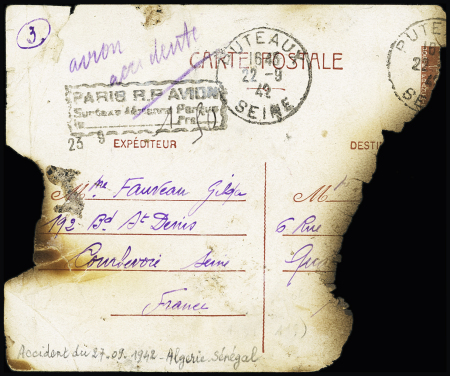 3.
avion
accidenté
CARTE POSTALE
PUTEAUX
22-9
42
SEINE
PUTE
42
PARIS R.P. AVION
Surtaxe Aérienne Perçue
1,50
23 9
EXPÉDITEUR
DESTI
Mme Fauveau
M
192 Bd St Denis
6 Rue
Courbevoie Seine
France
Accident du 27.09.1942 - Algerie-Sénégal